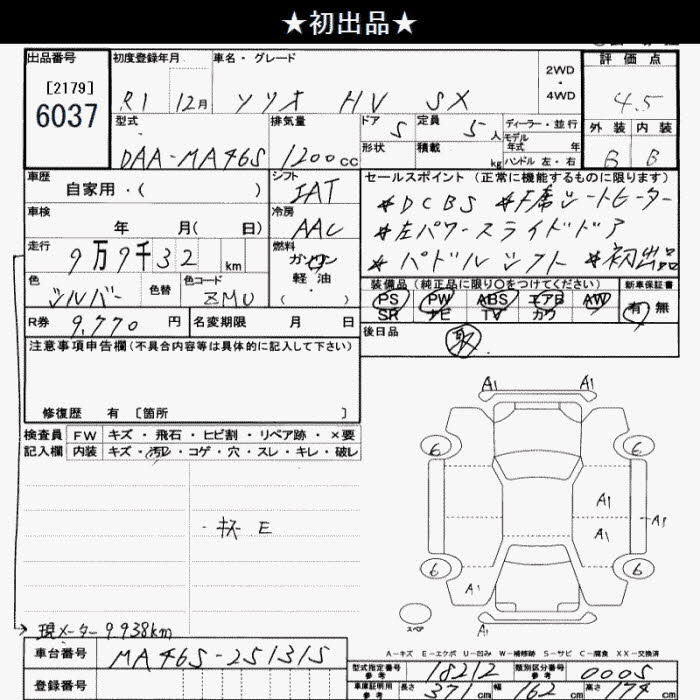 ★初出品★
出品番号
[2179]
6037
初度登録年月
R1 12月
車名・グレード
ソリオ HV SX
2WD
・
4WD
評価点
4.5
型式
DAA-MA46S
排気量
1200cc
ドア
5
定員
5人
形状
積載
kg
ディーラー・並行
モデル
年式 年
ハンドル 左・右
外装 内装
B B
車歴
自家用・( )
シフト
IAT
車検
年 月( 日)
冷房
AAC
走行
9万9千32 km
燃料
ガソリン
軽・油
( )
色
シルバー
色替
色コード
ZMU
R券 9,770 円
名変期限 月 日
セールスポイント (正常に機能するものに限ります)
*DCBS *F席シートヒーター
*左パワースライドドア
*パドルシフト *初出品
装備品 (純正品に限り〇をつけてください)
PS PW ABS エアB AW
SR ナビ TV カワ
新車保証書
有 無
後日品
取
注意事項申告欄(不具合内容等は具体的に記入して下さい)
修復歴 有 [箇所 ]
検査員 FW キズ・飛石・ヒビ割・リペア跡・×要
記入欄 内装 キズ・汚レ・コゲ・穴・スレ・キレ・破レ
・キズ E
A1 A1
6 6
A1
A1 A1
6 6
A1
A1
スペア
現メーター 9.938km
A-キズ E-エクボ U-凹み W-補修跡 S-サビ C-腐食 XX-交換済
車台番号 MA46S-251315
登録番号
型式指定番号 参考 18212
類別区分番号 参考 0005
車庫証明用 参考 長さ 371cm 幅 162cm 高さ 174cm